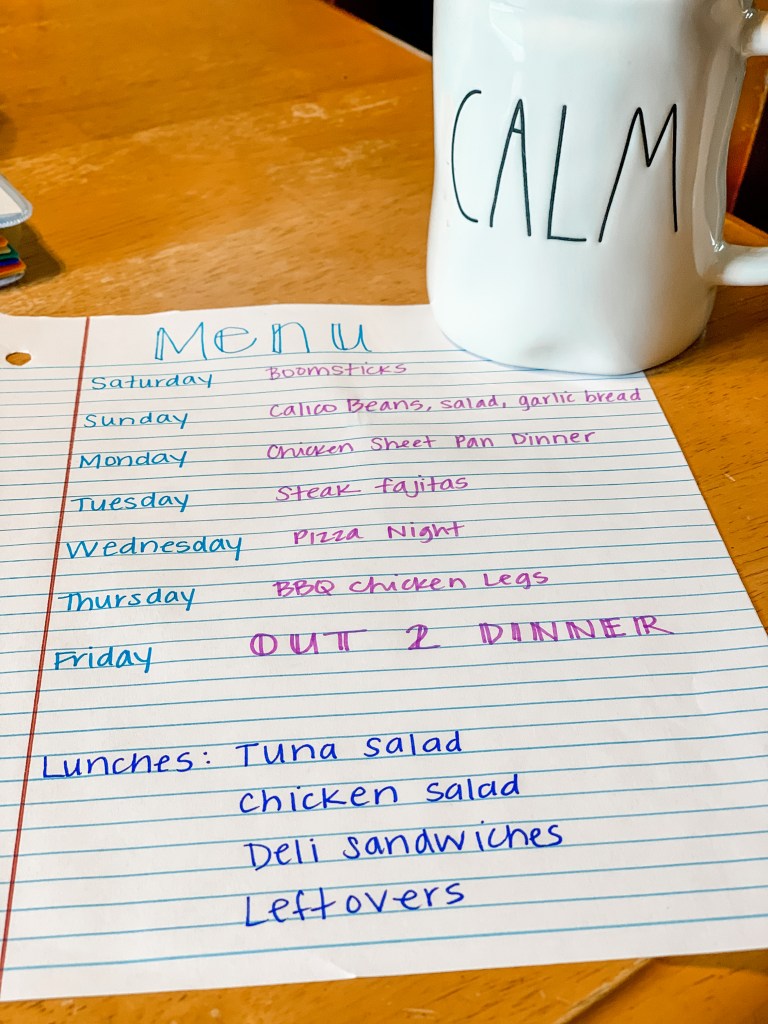 CALM
Menu
Saturday Boomsticks
Sunday Calico Beans, salad, garlic bread
Monday Chicken Sheet Pan Dinner
Tuesday Steak fajitas
Wednesday Pizza Night
Thursday BBQ chicken Legs
Friday OUT 2 DINNER
Lunches: Tuna salad
chicken salad
Deli sandwiches
Leftovers